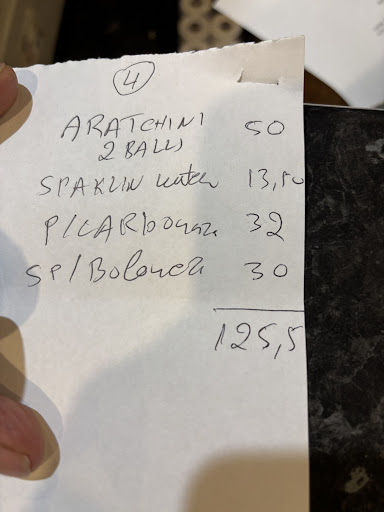 4
ARATCHINI 50
2 BALLS
SPAKLIN water 13,50
P/CARbonara 32
SP/Bolonea 30
125,5